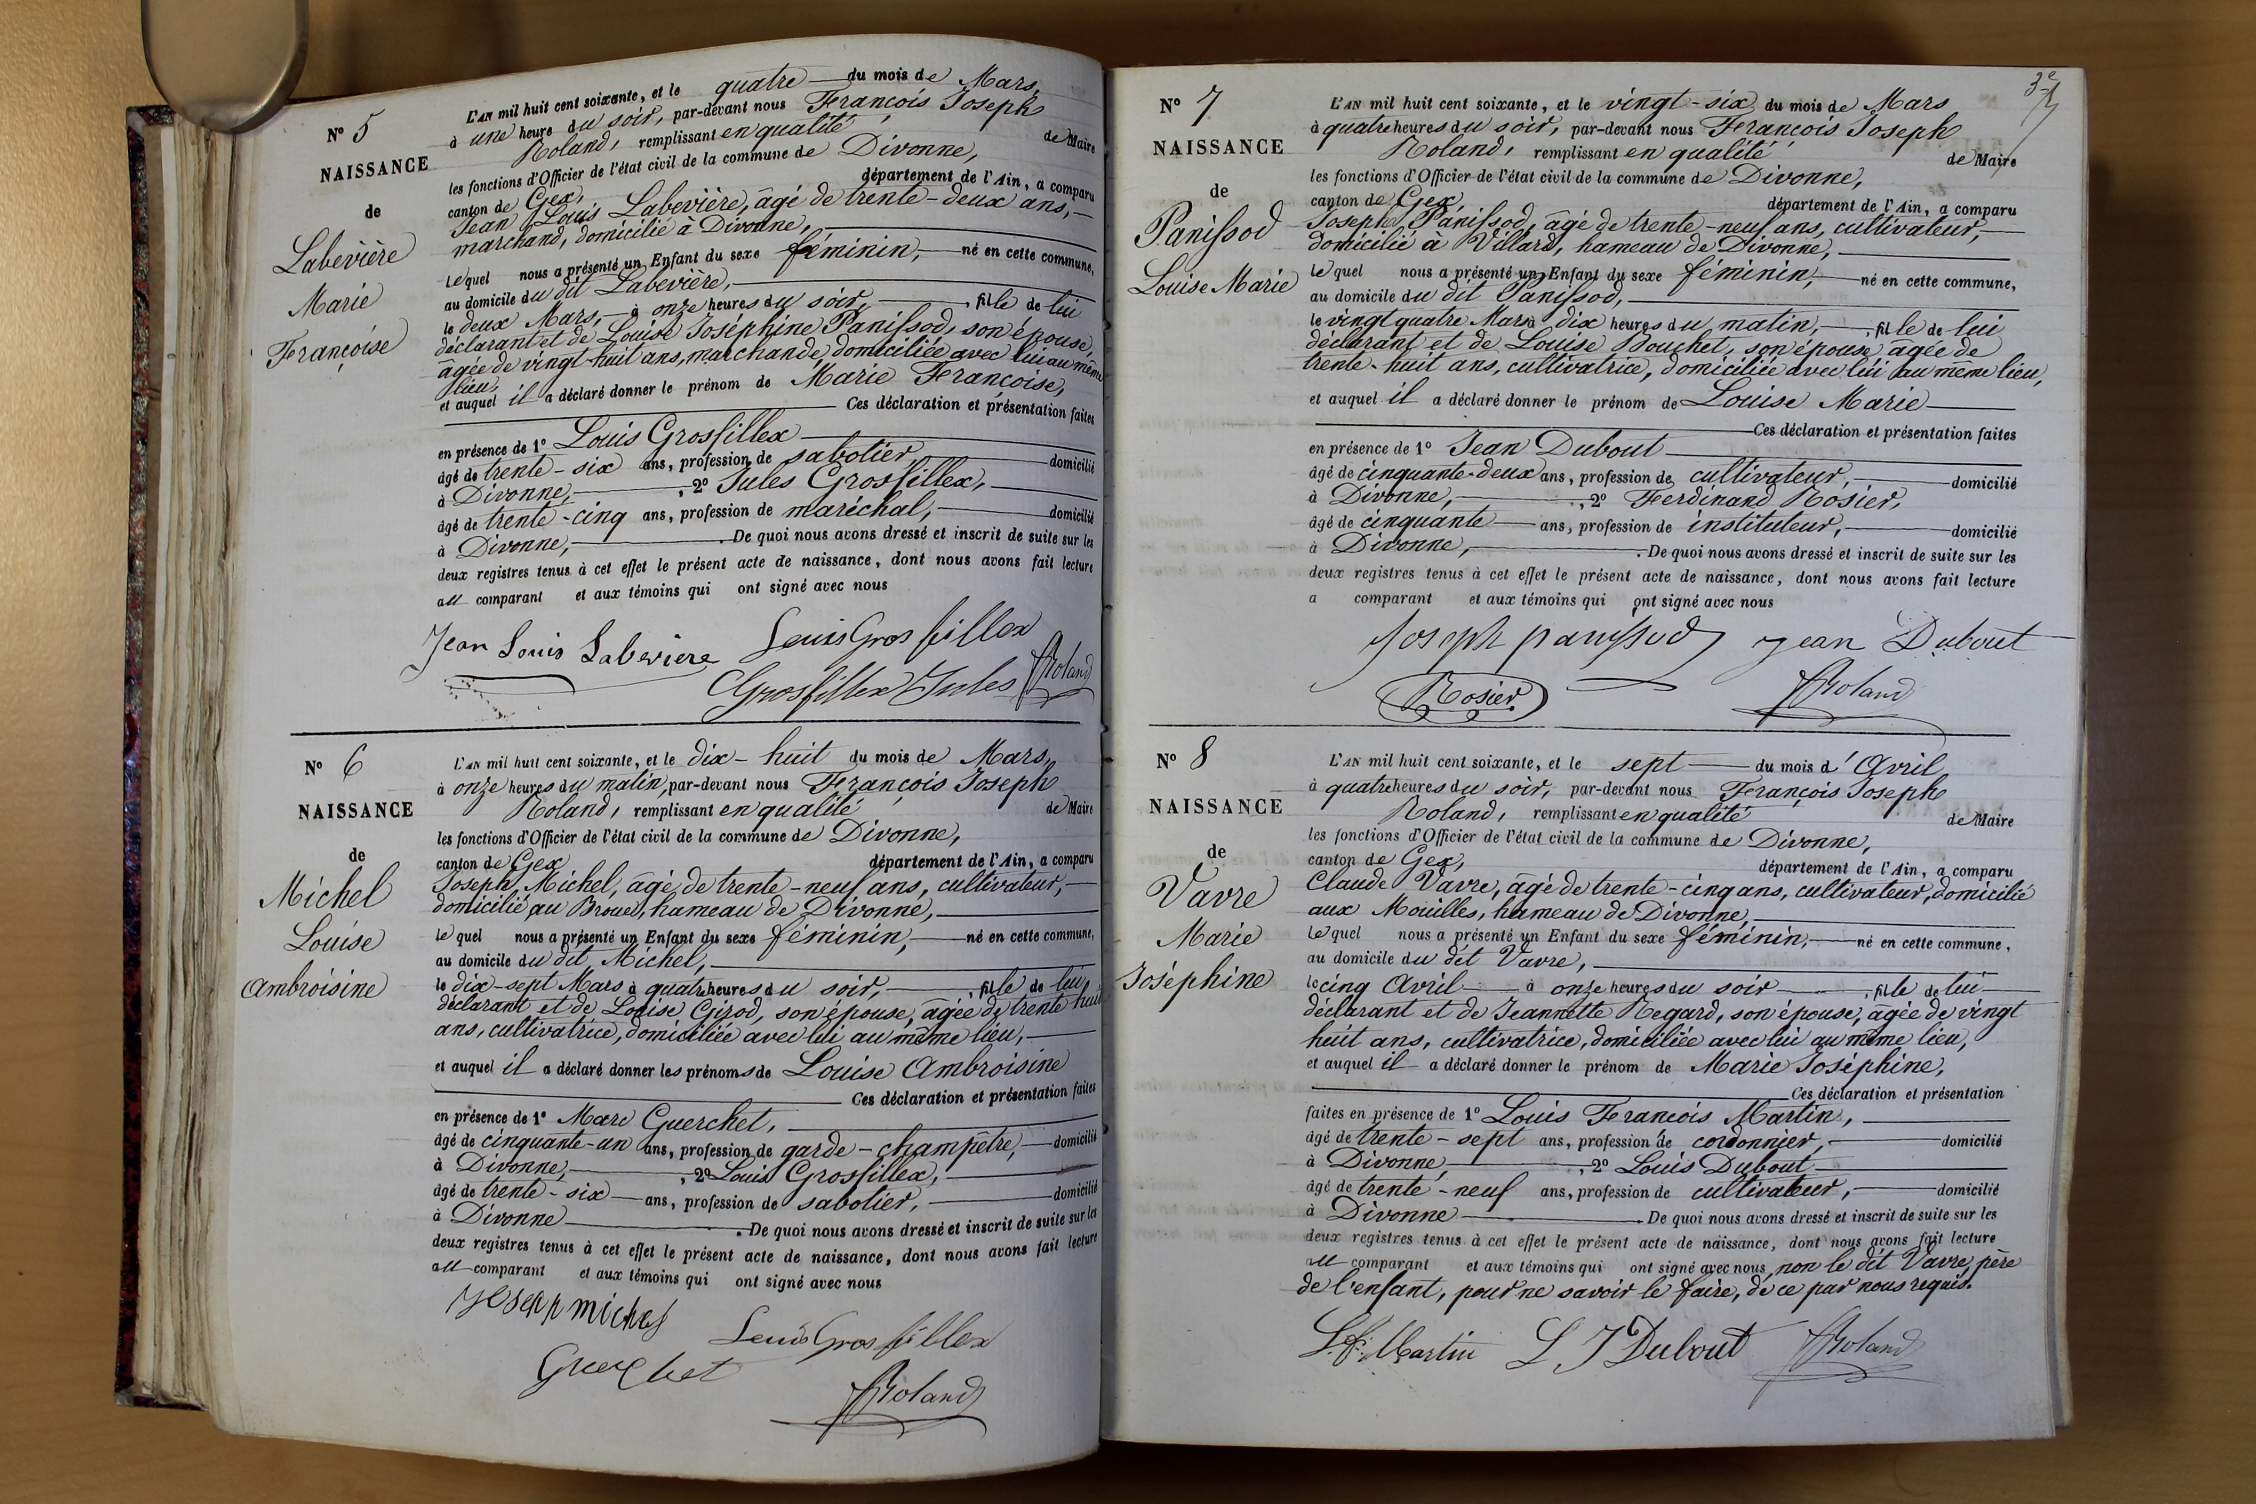 N° 5
NAISSANCE
de
Labevière
Marie
Françoise
L'AN mil huit cent soixante, et le quatre du mois de Mars,
à une heure du soir, par-devant nous François Joseph
Roland, remplissant en qualité de Maire
les fonctions d'Officier de l'état civil de la commune de Divonne,
canton de Gex, département de l'Ain, a comparu
Jean Louis Labevière, âgé de trente-deux ans,
marchand, domicilié à Divonne,
lequel nous a présenté un Enfant du sexe féminin, né en cette commune,
au domicile du dit Labevière,
le deux Mars, à onze heures du soir, fille de lui
déclarant et de Louise Joséphine Panissod, son épouse,
âgée de vingt-huit ans, marchande, domiciliée avec lui au même
lieu,
et auquel il a déclaré donner le prénom de Marie Françoise,
Ces déclaration et présentation faites
en présence de 1° Louis Grosfillex
âgé de trente-six ans, profession de sabotier, domicilié
à Divonne, , 2° Jules Grosfillex,
âgé de trente-cinq ans, profession de maréchal, domicilié
à Divonne, . De quoi nous avons dressé et inscrit de suite sur les
deux registres tenus à cet effet le présent acte de naissance, dont nous avons fait lecture
au comparant et aux témoins qui ont signé avec nous
Jean Louis Labeviere Louis Grosfillex
Grosfillex Jules Roland
N° 6
NAISSANCE
de
Michel
Louise
Ambroisine
L'AN mil huit cent soixante, et le dix-huit du mois de Mars,
à onze heures du matin, par-devant nous François Joseph
Roland, remplissant en qualité de Maire
les fonctions d'Officier de l'état civil de la commune de Divonne,
canton de Gex département de l'Ain, a comparu
Joseph Michel, âgé de trente-neuf ans, cultivateur,
domicilié au Brouet, hameau de Divonne,
lequel nous a présenté un Enfant du sexe féminin, né en cette commune,
au domicile du dit Michel,
le dix-sept Mars à quatre heures du soir, , fille de lui
déclarant et de Louise Girod, son épouse, âgée de trente huit
ans, cultivatrice, domiciliée avec lui au même lieu,
et auquel il a déclaré donner les prénoms de Louise Ambroisine
Ces déclaration et présentation faites
en présence de 1° Marc Guerchet,
âgé de cinquante-un ans, profession de garde-champêtre, domicilié
à Divonne, , 2° Louis Grosfillex,
âgé de trente-six ans, profession de sabotier, domicilié
à Divonne . De quoi nous avons dressé et inscrit de suite sur les
deux registres tenus à cet effet le présent acte de naissance, dont nous avons fait lecture
au comparant et aux témoins qui ont signé avec nous
Joseph michel
Louis Grosfillex
Guerchet
Roland
3e
N° 7
NAISSANCE
de
Panissod
Louise Marie
L'AN mil huit cent soixante, et le vingt-six du mois de Mars
à quatre heures du soir, par-devant nous François Joseph
Roland, remplissant en qualité de Maire
les fonctions d'Officier de l'état civil de la commune de Divonne,
canton de Gex, département de l'Ain, a comparu
Joseph Panissod, âgé de trente-neuf ans, cultivateur,
domicilié à Villard, hameau de Divonne,
lequel nous a présenté un Enfant du sexe féminin, né en cette commune,
au domicile du dit Panissod,
le vingt quatre Mars à dix heures du matin, , fille de lui
déclarant et de Louise Bouchet, son épouse, âgée de
trente-huit ans, cultivatrice, domiciliée avec lui au même lieu,
et auquel il a déclaré donner le prénom de Louise Marie
Ces déclaration et présentation faites
en présence de 1° Jean Dubout
âgé de cinquante-deux ans, profession de cultivateur, domicilié
à Divonne, , 2° Ferdinand Rosier,
âgé de cinquante ans, profession de instituteur, domicilié
à Divonne, . De quoi nous avons dressé et inscrit de suite sur les
deux registres tenus à cet effet le présent acte de naissance, dont nous avons fait lecture
a comparant et aux témoins qui ont signé avec nous
Joseph panissod jean Dubout
Rosier Roland
N° 8
NAISSANCE
de
Vavre
Marie
Joséphine
L'AN mil huit cent soixante, et le sept du mois d'Avril
à quatre heures du soir, par-devant nous François Joseph
Roland, remplissant en qualité de Maire
les fonctions d'Officier de l'état civil de la commune de Divonne,
canton de Gex, département de l'Ain, a comparu
Claude Vavre, âgé de trente-cinq ans, cultivateur, domicilié
aux Mouilles, hameau de Divonne,
lequel nous a présenté un Enfant du sexe féminin, né en cette commune,
au domicile du dit Vavre,
le cinq Avril à onze heures du soir , fille de lui
déclarant et de Jeannette Regard, son épouse, âgée de vingt
huit ans, cultivatrice, domiciliée avec lui au même lieu,
et auquel il a déclaré donner le prénom de Marie Joséphine,
Ces déclaration et présentation
faites en présence de 1° Louis François Martin,
âgé de trente-sept ans, profession de cordonnier, domicilié
à Divonne, , 2° Louis Dubout
âgé de trente-neuf ans, profession de cultivateur, domicilié
à Divonne . De quoi nous avons dressé et inscrit de suite sur les
deux registres tenus à cet effet le présent acte de naissance, dont nous avons fait lecture
au comparant et aux témoins qui ont signé avec nous, non le dit Vavre, père
de l'enfant, pour ne savoir le faire, de ce par nous requis.
L. f. Martin L J Dubout Roland